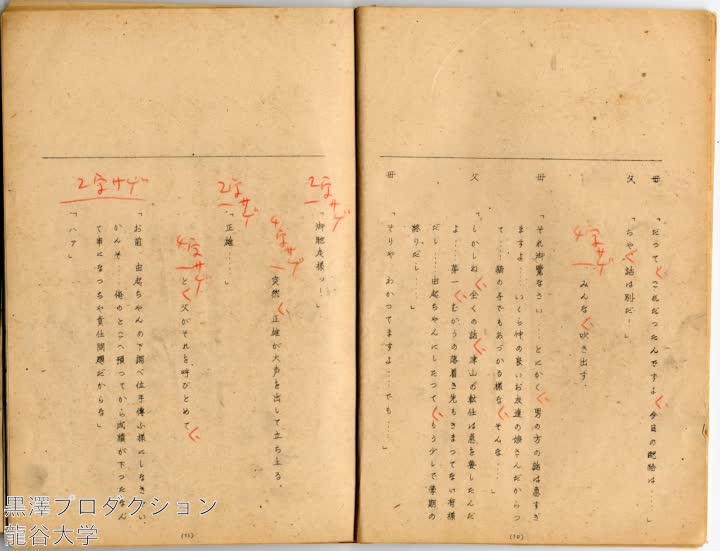 母
「だつて これだつたんですよ 今日の配給は……」
父
「ちや 話は別だ…」
4字サゲ
みんな 吹き出す。
母
「それ御覧なさい とにかく 男の方の話は悪すぎ
ますよ…… いくら仲の良いお友達の娘さんだからつ
て…… 猫の子でもあづかる様な そんな…… 」
父
「しかしね 全くの話 津山の転任は急を要したんだ
よ…… 第一 むかうの落着き先もきまつてない有様
だし…… 由起ちやんにしたつて もう少しで学期の
終りだし…… 」
母
「そりや わかつてますよ……でも……」
(10)
2字サゲ
「御馳走様ツ…」
4字サゲ
突然 正雄が大声を出して立ち上る。
2字サゲ
「正雄……」
4字サゲ
と 父がそれを呼びとめて
2字サゲ
「お前 由起ちやんの下調べ位手傳ふ様にしなきや い
かんぞ…… 俺のとこへ預つてから成績が下つたなん
て事になつちや責任問題だからな」
「ハア」
(11)
黒澤プロダクション
龍谷大学